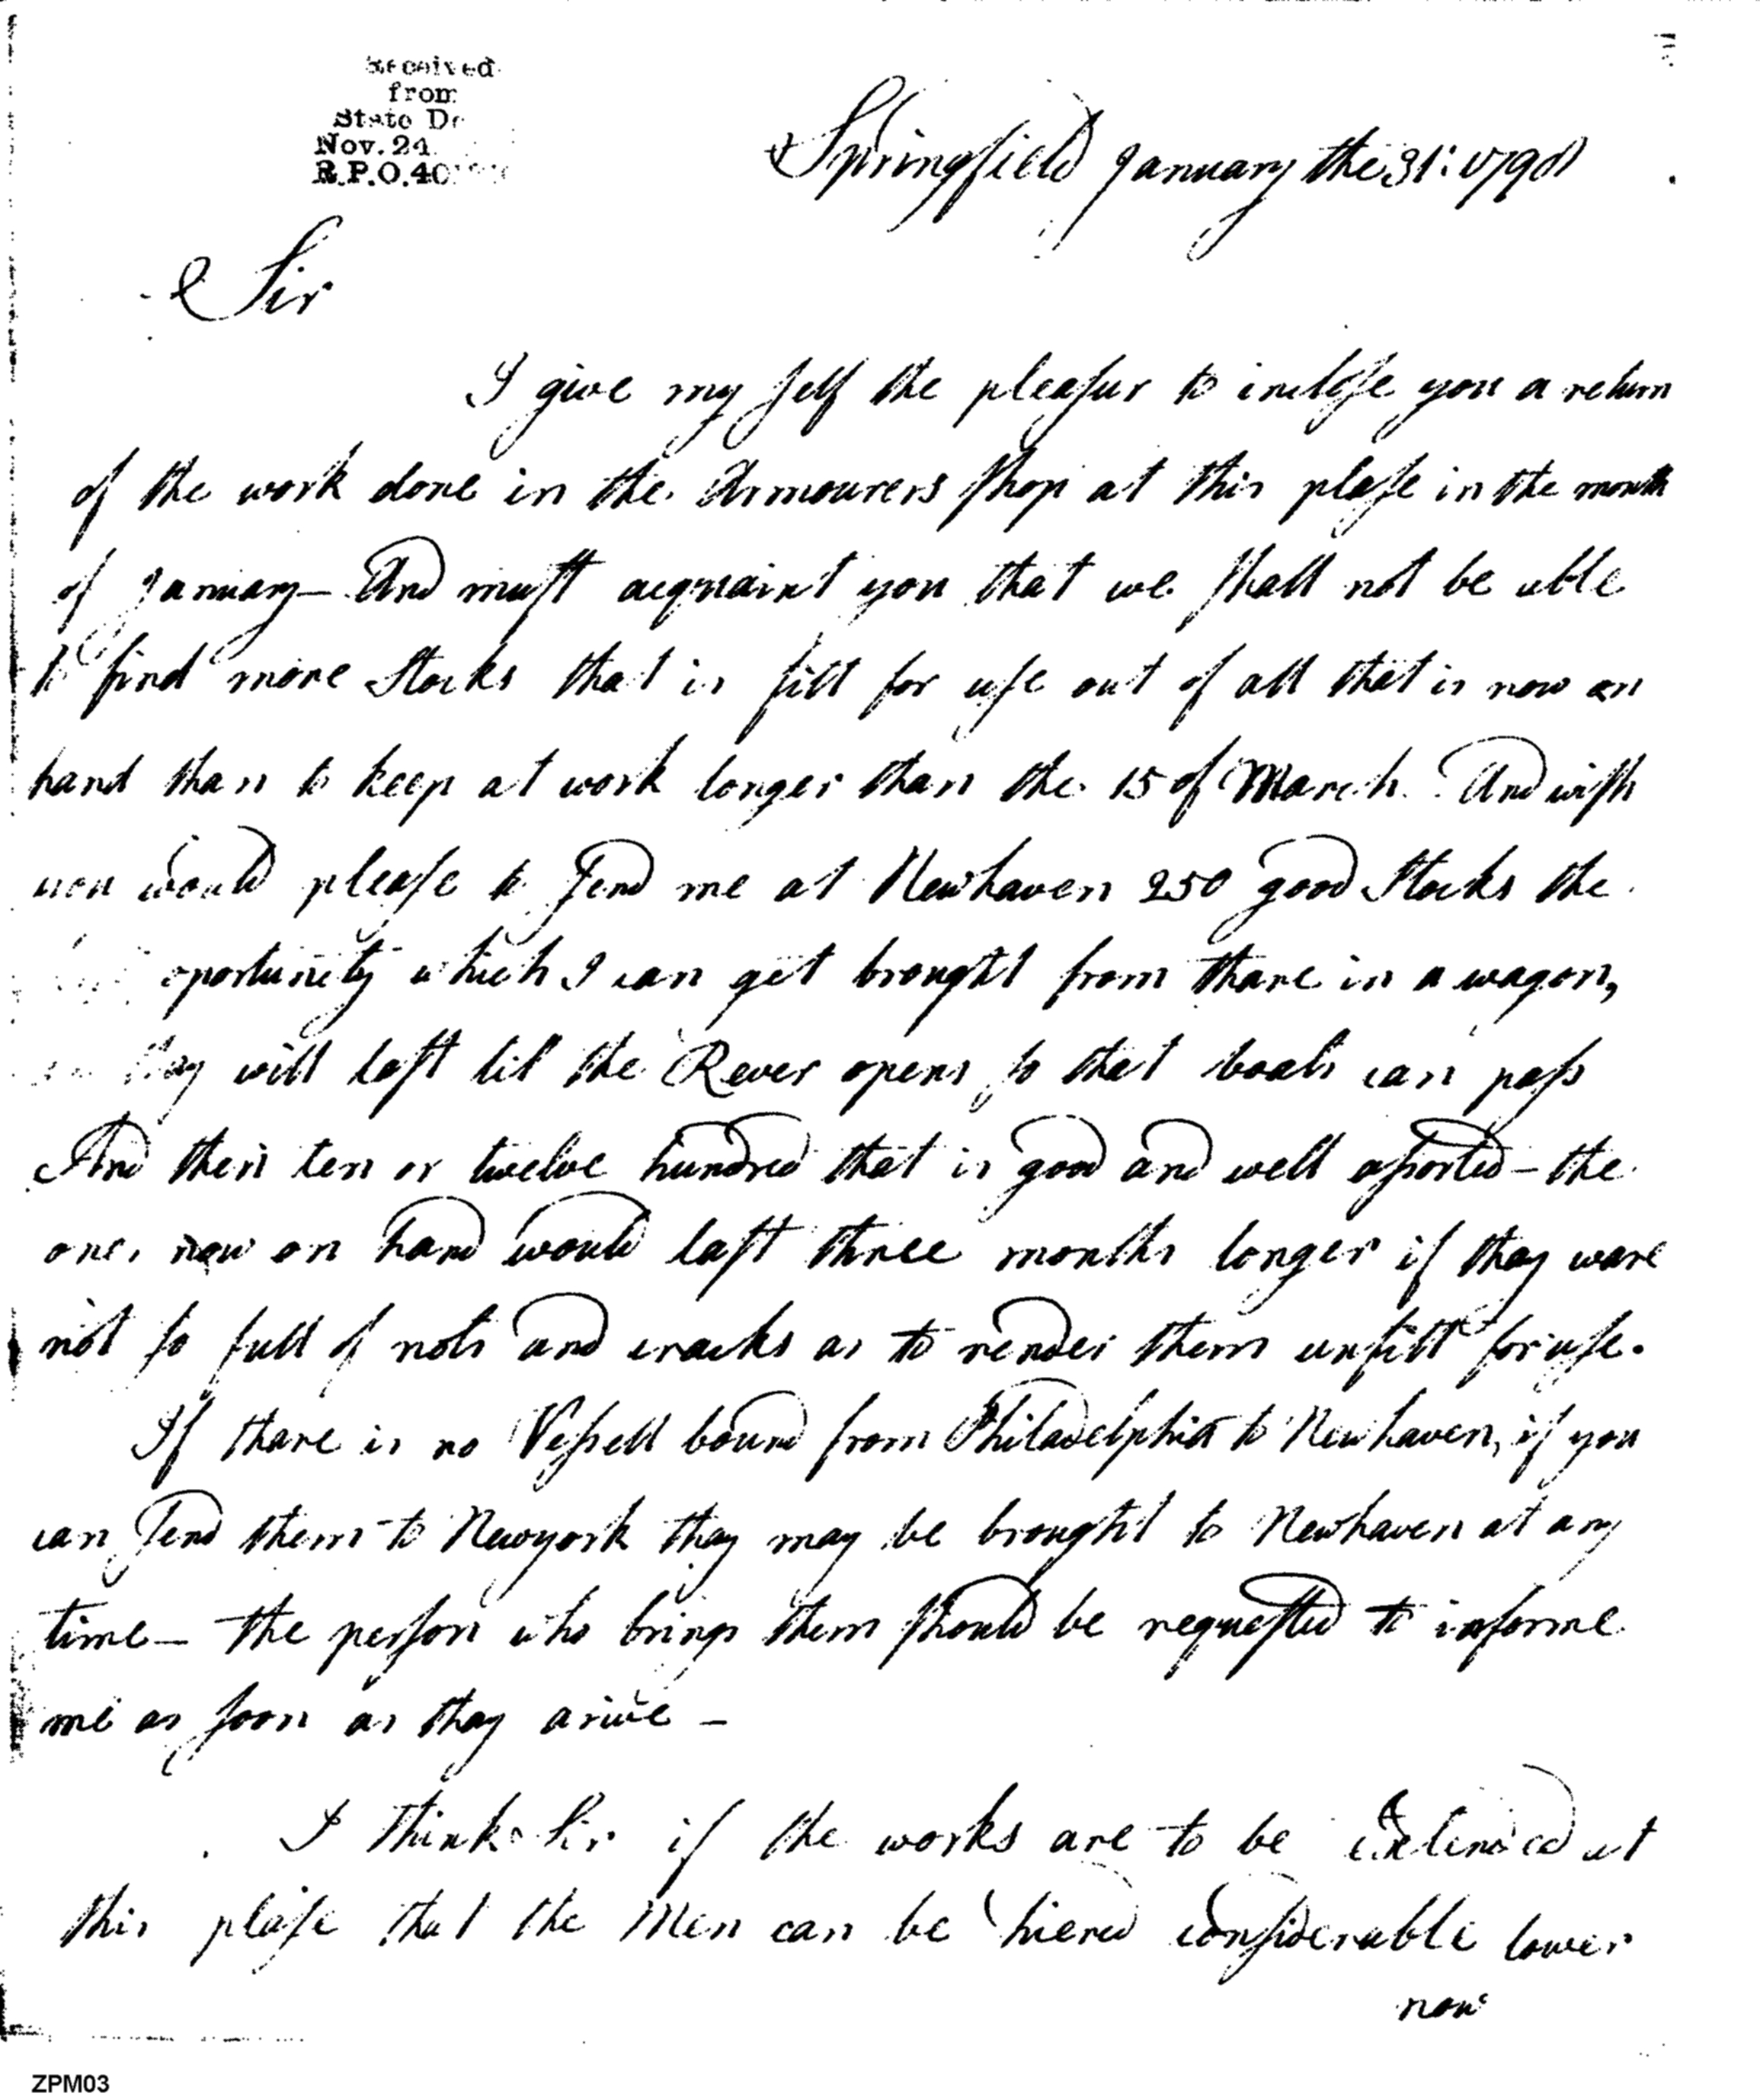 Received
from
State De
Nov. 24
R.P.O. 40
Springfield January the 31: 179
Sir
I give my self the pleasur to inclose you a return
of the work done in the Armourers Shop at this plase in the month
of January — And must acquaint you that we shall not be able
to find more Stocks that is fitt for use out of all that is now on
hand than to keep at work longer than the 15 of March. And wish
you would please to send me at Newhaven 250 good Stocks the
oportunity which I can get brought from thare in a wagon,
thay will last til the River opens so that boats can pass
And then ten or twelve hundred that is good and well assorted — the
ones now on hand would last three months longer if thay ware
not so full of nots and cracks as to render them unfitt for use.
If thare is no Vessell bound from Philadelphia to Newhaven, if you
can send them to Newyork thay may be brought to Newhaven at any
time — the person who brings them should be requested to informe
me as soon as thay arive —
I think Sir if the works are to be Extended at
this plase that the Men can be hiered considerable lower
now
ZPM03